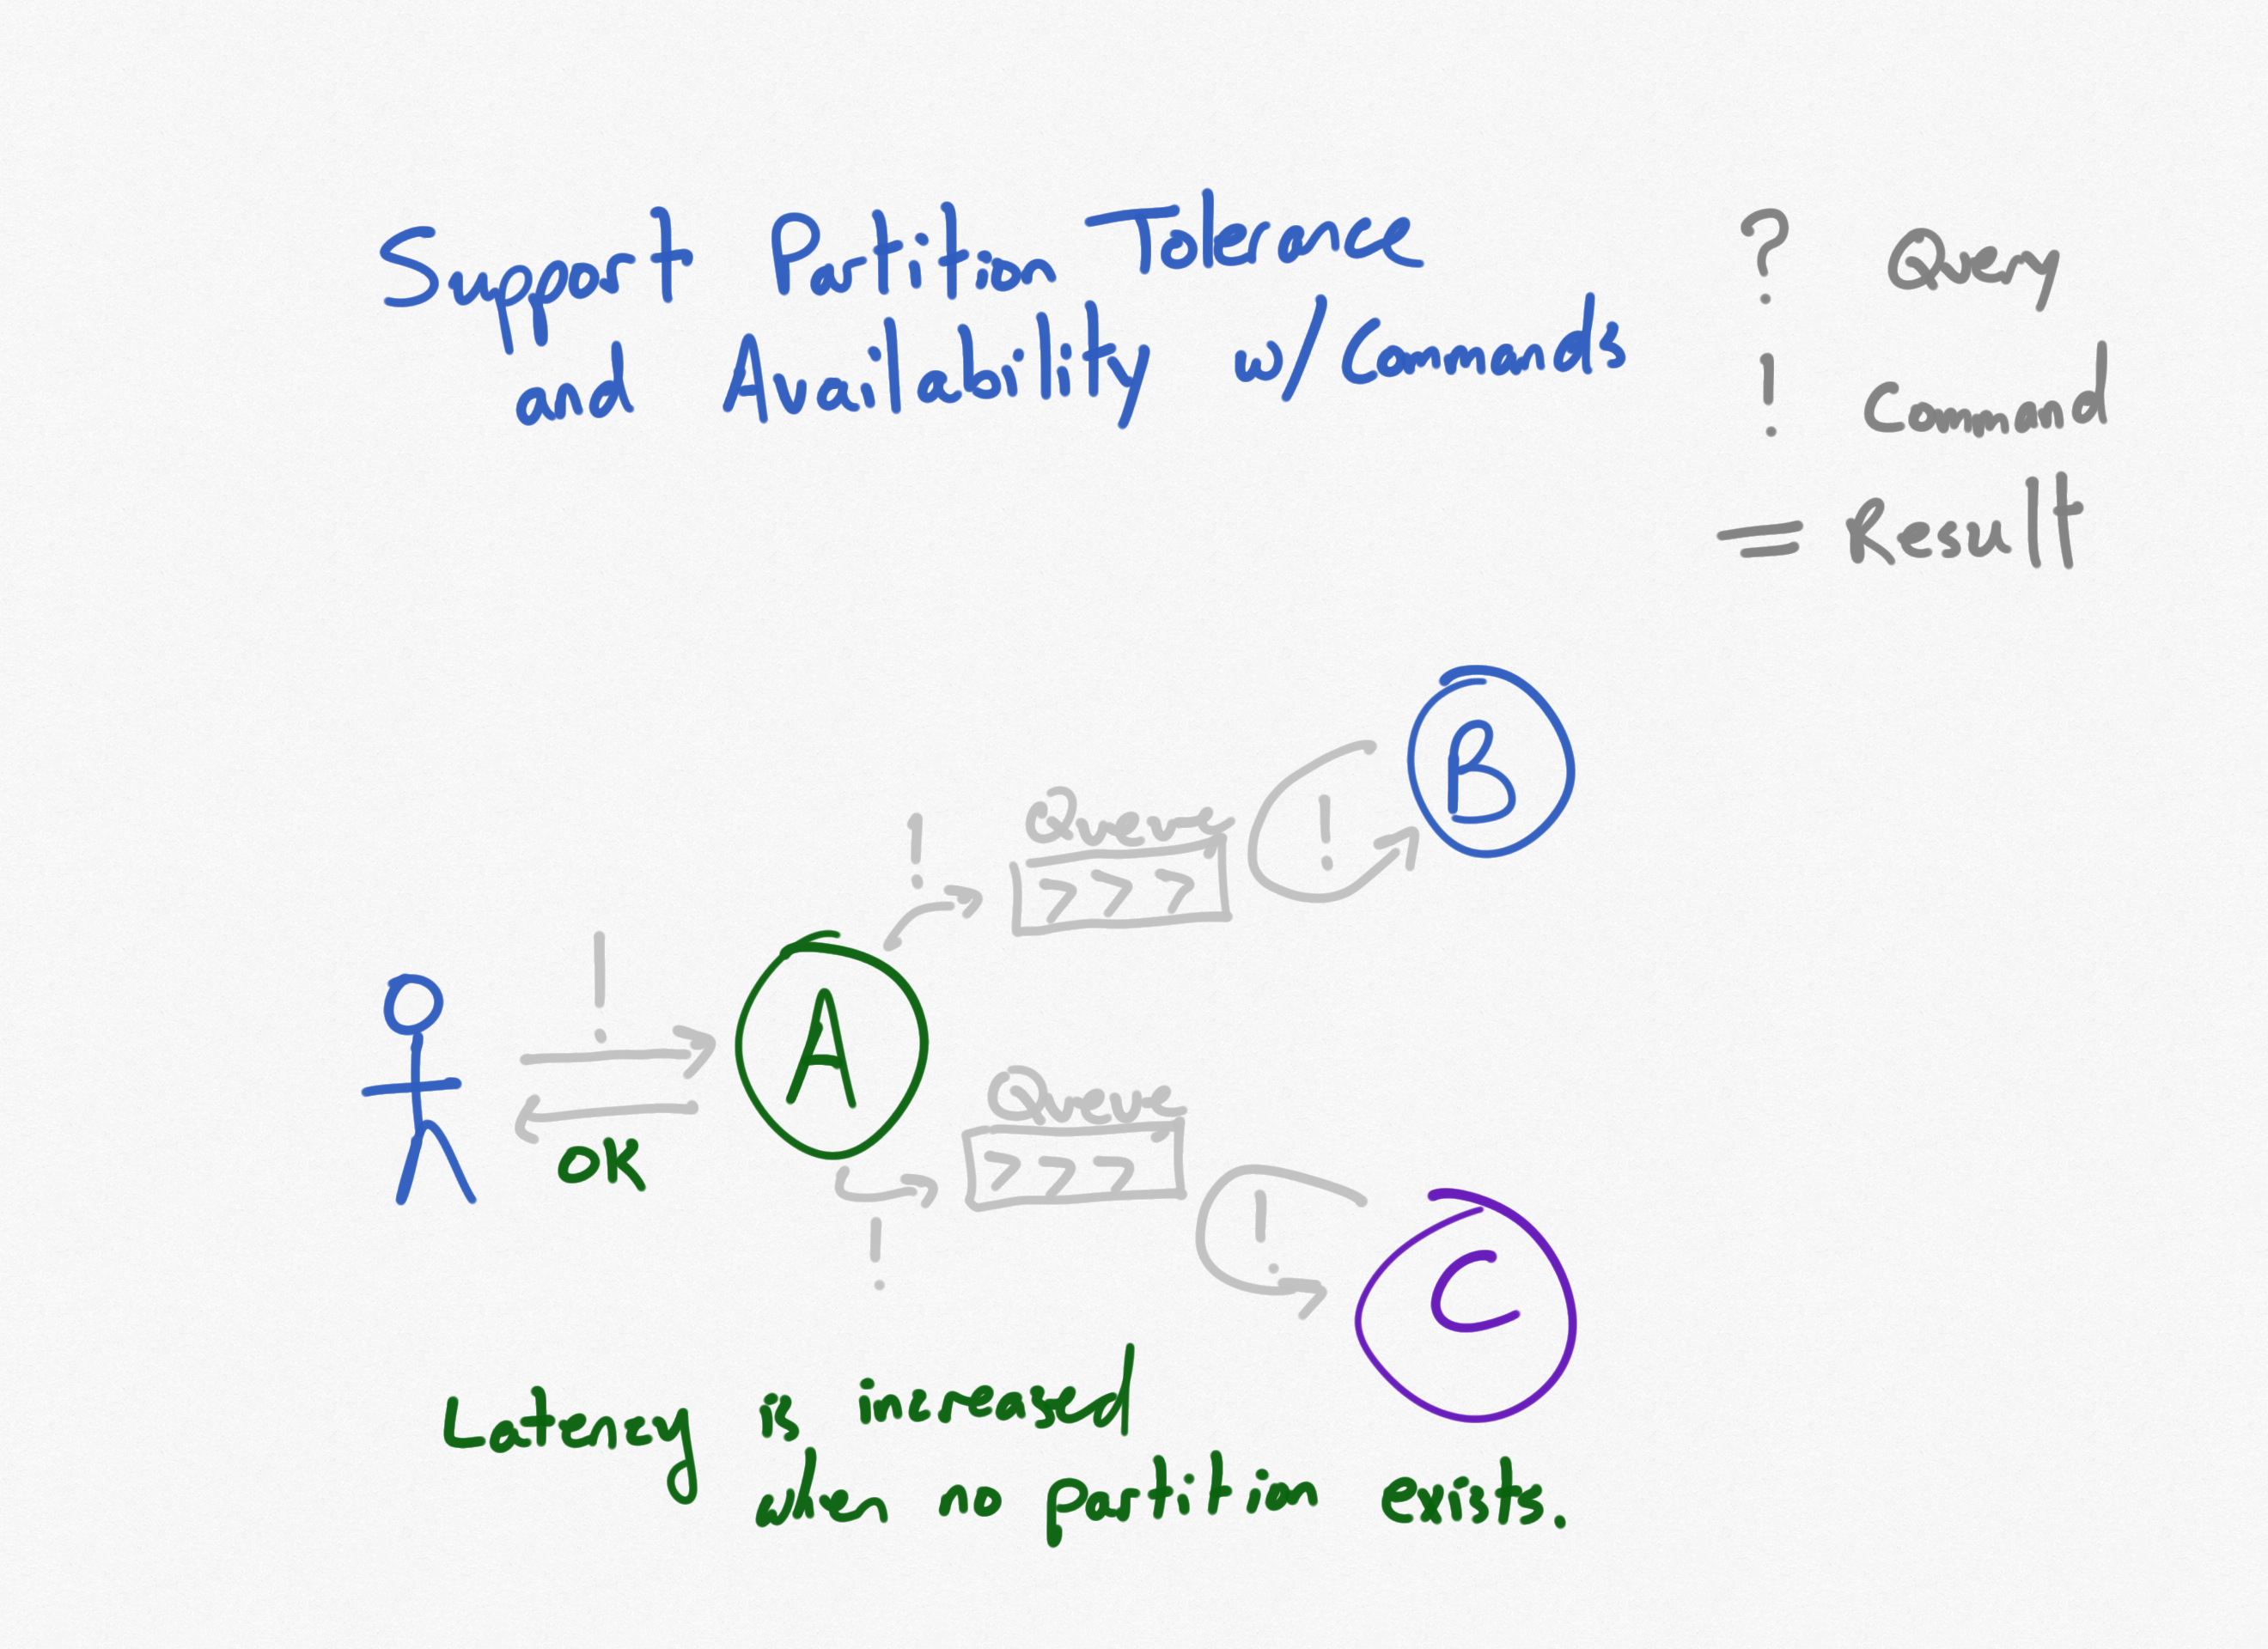 Support Partition Tolerance
and Availability w/Commands
? Query
! Command
= Result
B
Queue
!
!
>>>
!
A
Queue
OK
>>>
!
!
C
Latency is increased
when no partition exists.